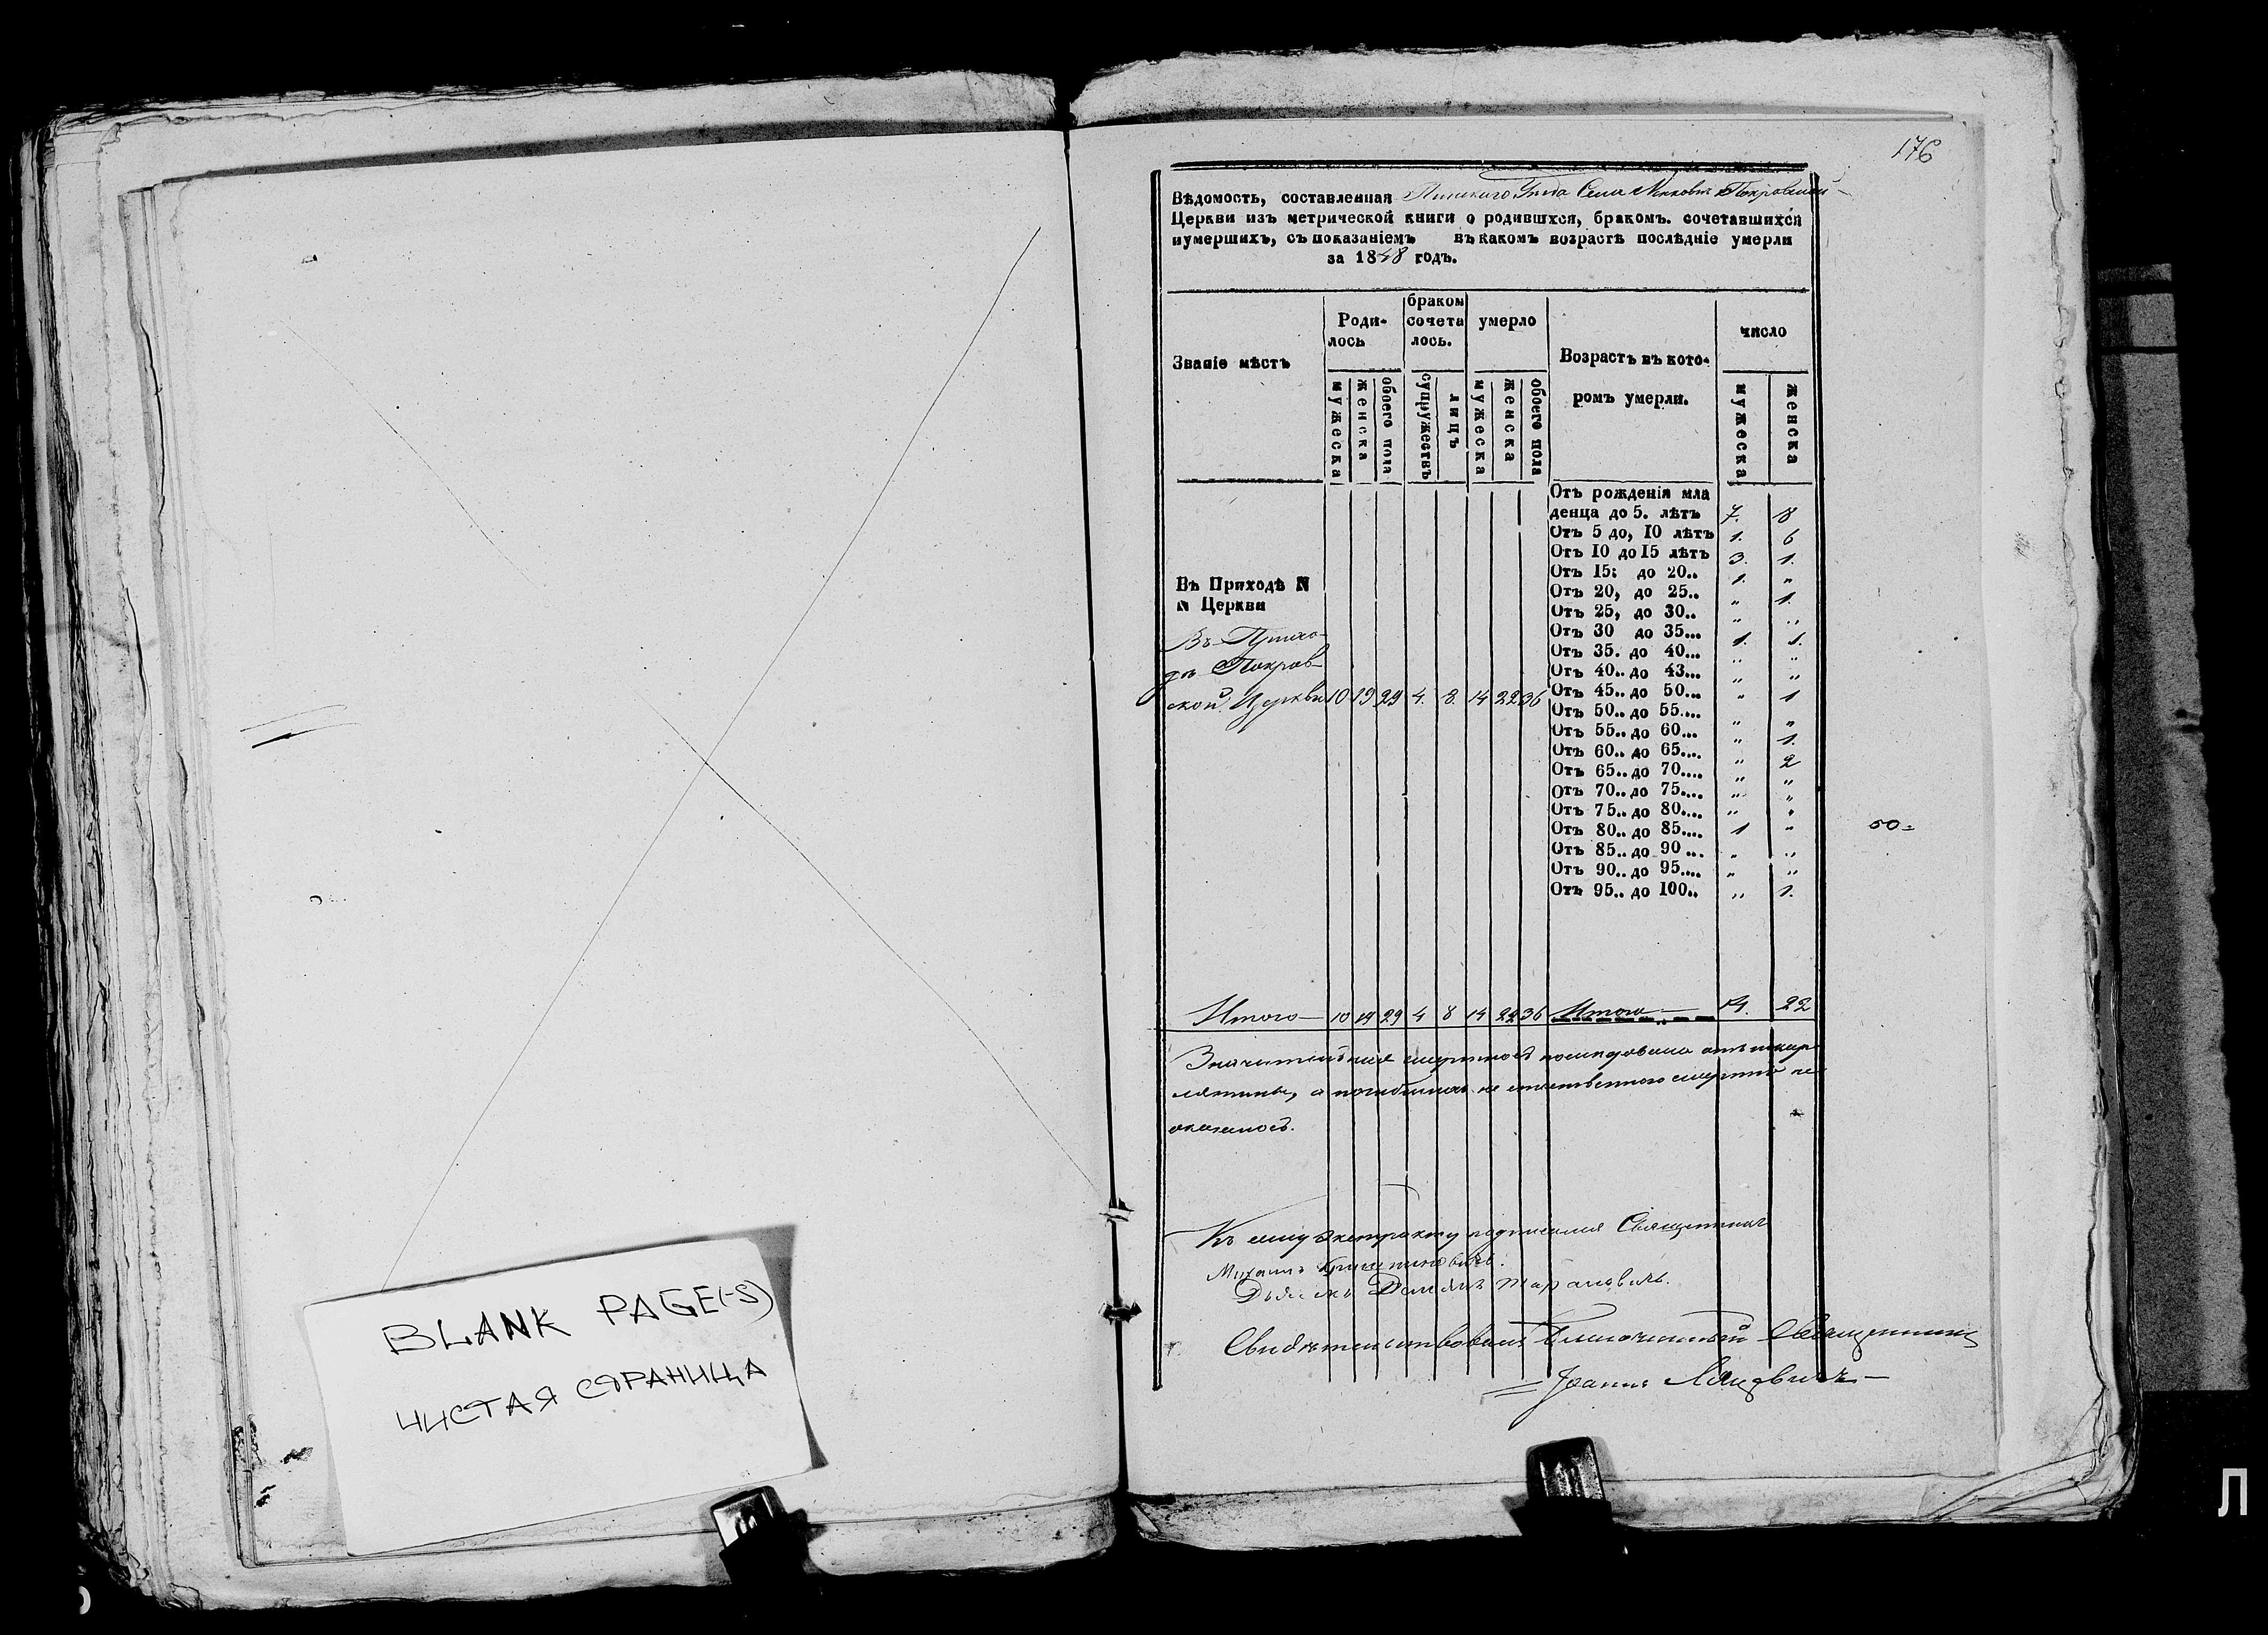 BLANK PAGE(-S)
ЧИСТАЯ СТРАНИЦА
176
Вѣдомость, составленная Пинскаго Уѣзда Села Покровской
Церкви изъ метрической книги о родившхся, бракомъ. сочетавшихся
иумершихъ, съ показаніемъ въ какомъ возрастѣ послѣдніе умерли
за 1848 годъ.
Званіе мѣстъ
Роди-
лось
браком
сочета
лось.
умерло
Возрастъ въ кото-
ромъ умерли.
число
мужеска
женска
обоего пола
супружествъ
лицъ
мужеска
женска
обоего пола
мужеска
женска
Въ Приходѣ N
N Церкви
Въ Прихо-
дѣ Покров-
ской Церкви 10 19 29 4. 8. 14 22 36
Отъ рожденія мла
денца до 5. лѣтъ 7. 8
Отъ 5 до, 10 лѣтъ 1. 6
Отъ 10 до 15 лѣтъ 3. 1.
Отъ 15: до 20.. 1. "
Отъ 20, до 25.. " 1.
Отъ 25, до 30.. " "
Отъ 30 до 35... 1. 1.
Отъ 35. до 40... " "
Отъ 40.. до 43... " "
Отъ 45.. до 50... " 1
Отъ 50.. до 55.... " "
Отъ 55.. до 60... " 1.
Отъ 60.. до 65.... " 2
Отъ 65.. до 70.... " "
Отъ 70.. до 75.... " "
Отъ 75.. до 80.... " "
Отъ 80.. до 85.... 1 "
Отъ 85.. до 90... " "
Отъ 90.. до 95.... " "
Отъ 95.. до 100.. " 1.
50=
Итого 10 19 29 4 8 14 22 36 Итого 14. 22
Значительная смертность послѣдовала отъ скар-
лятины, а погибшихъ не естественною смертію не
оказалось.
Къ сему экстракту подписался Священникъ
Михаилъ
Дьячекъ Тарановичъ.
Свидѣтельствовалъ Благочинный Священникъ
Іоаннъ
Л